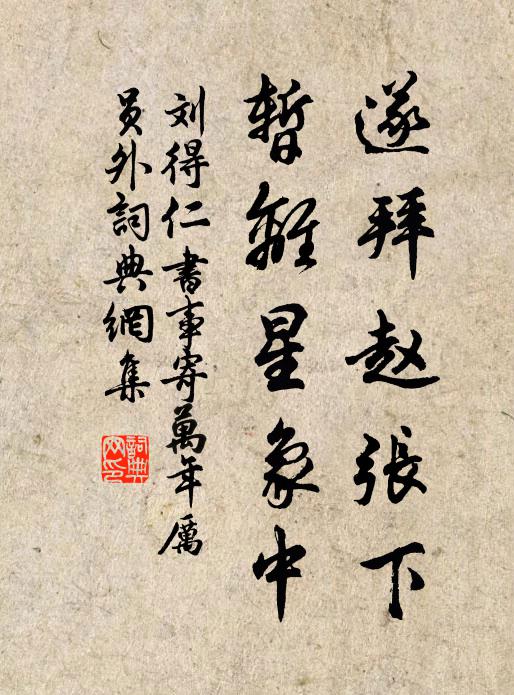 遂拜赵張下
暫離星象中
刘得仁書事寄萬年厲
員外詞典網集
詞典网印